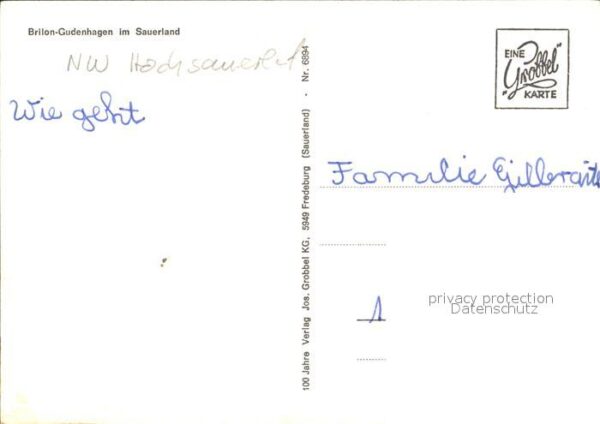 Brilon-Gudenhagen im Sauerland
NW Hochsauerld
Wie geht
100 Jahre Verlag Jos. Grobbel KG, 5949 Fredeburg (Sauerland) · Nr. 6894
EINE
"Grobbel"
KARTE
Familie
1
privacy protection
Datenschutz